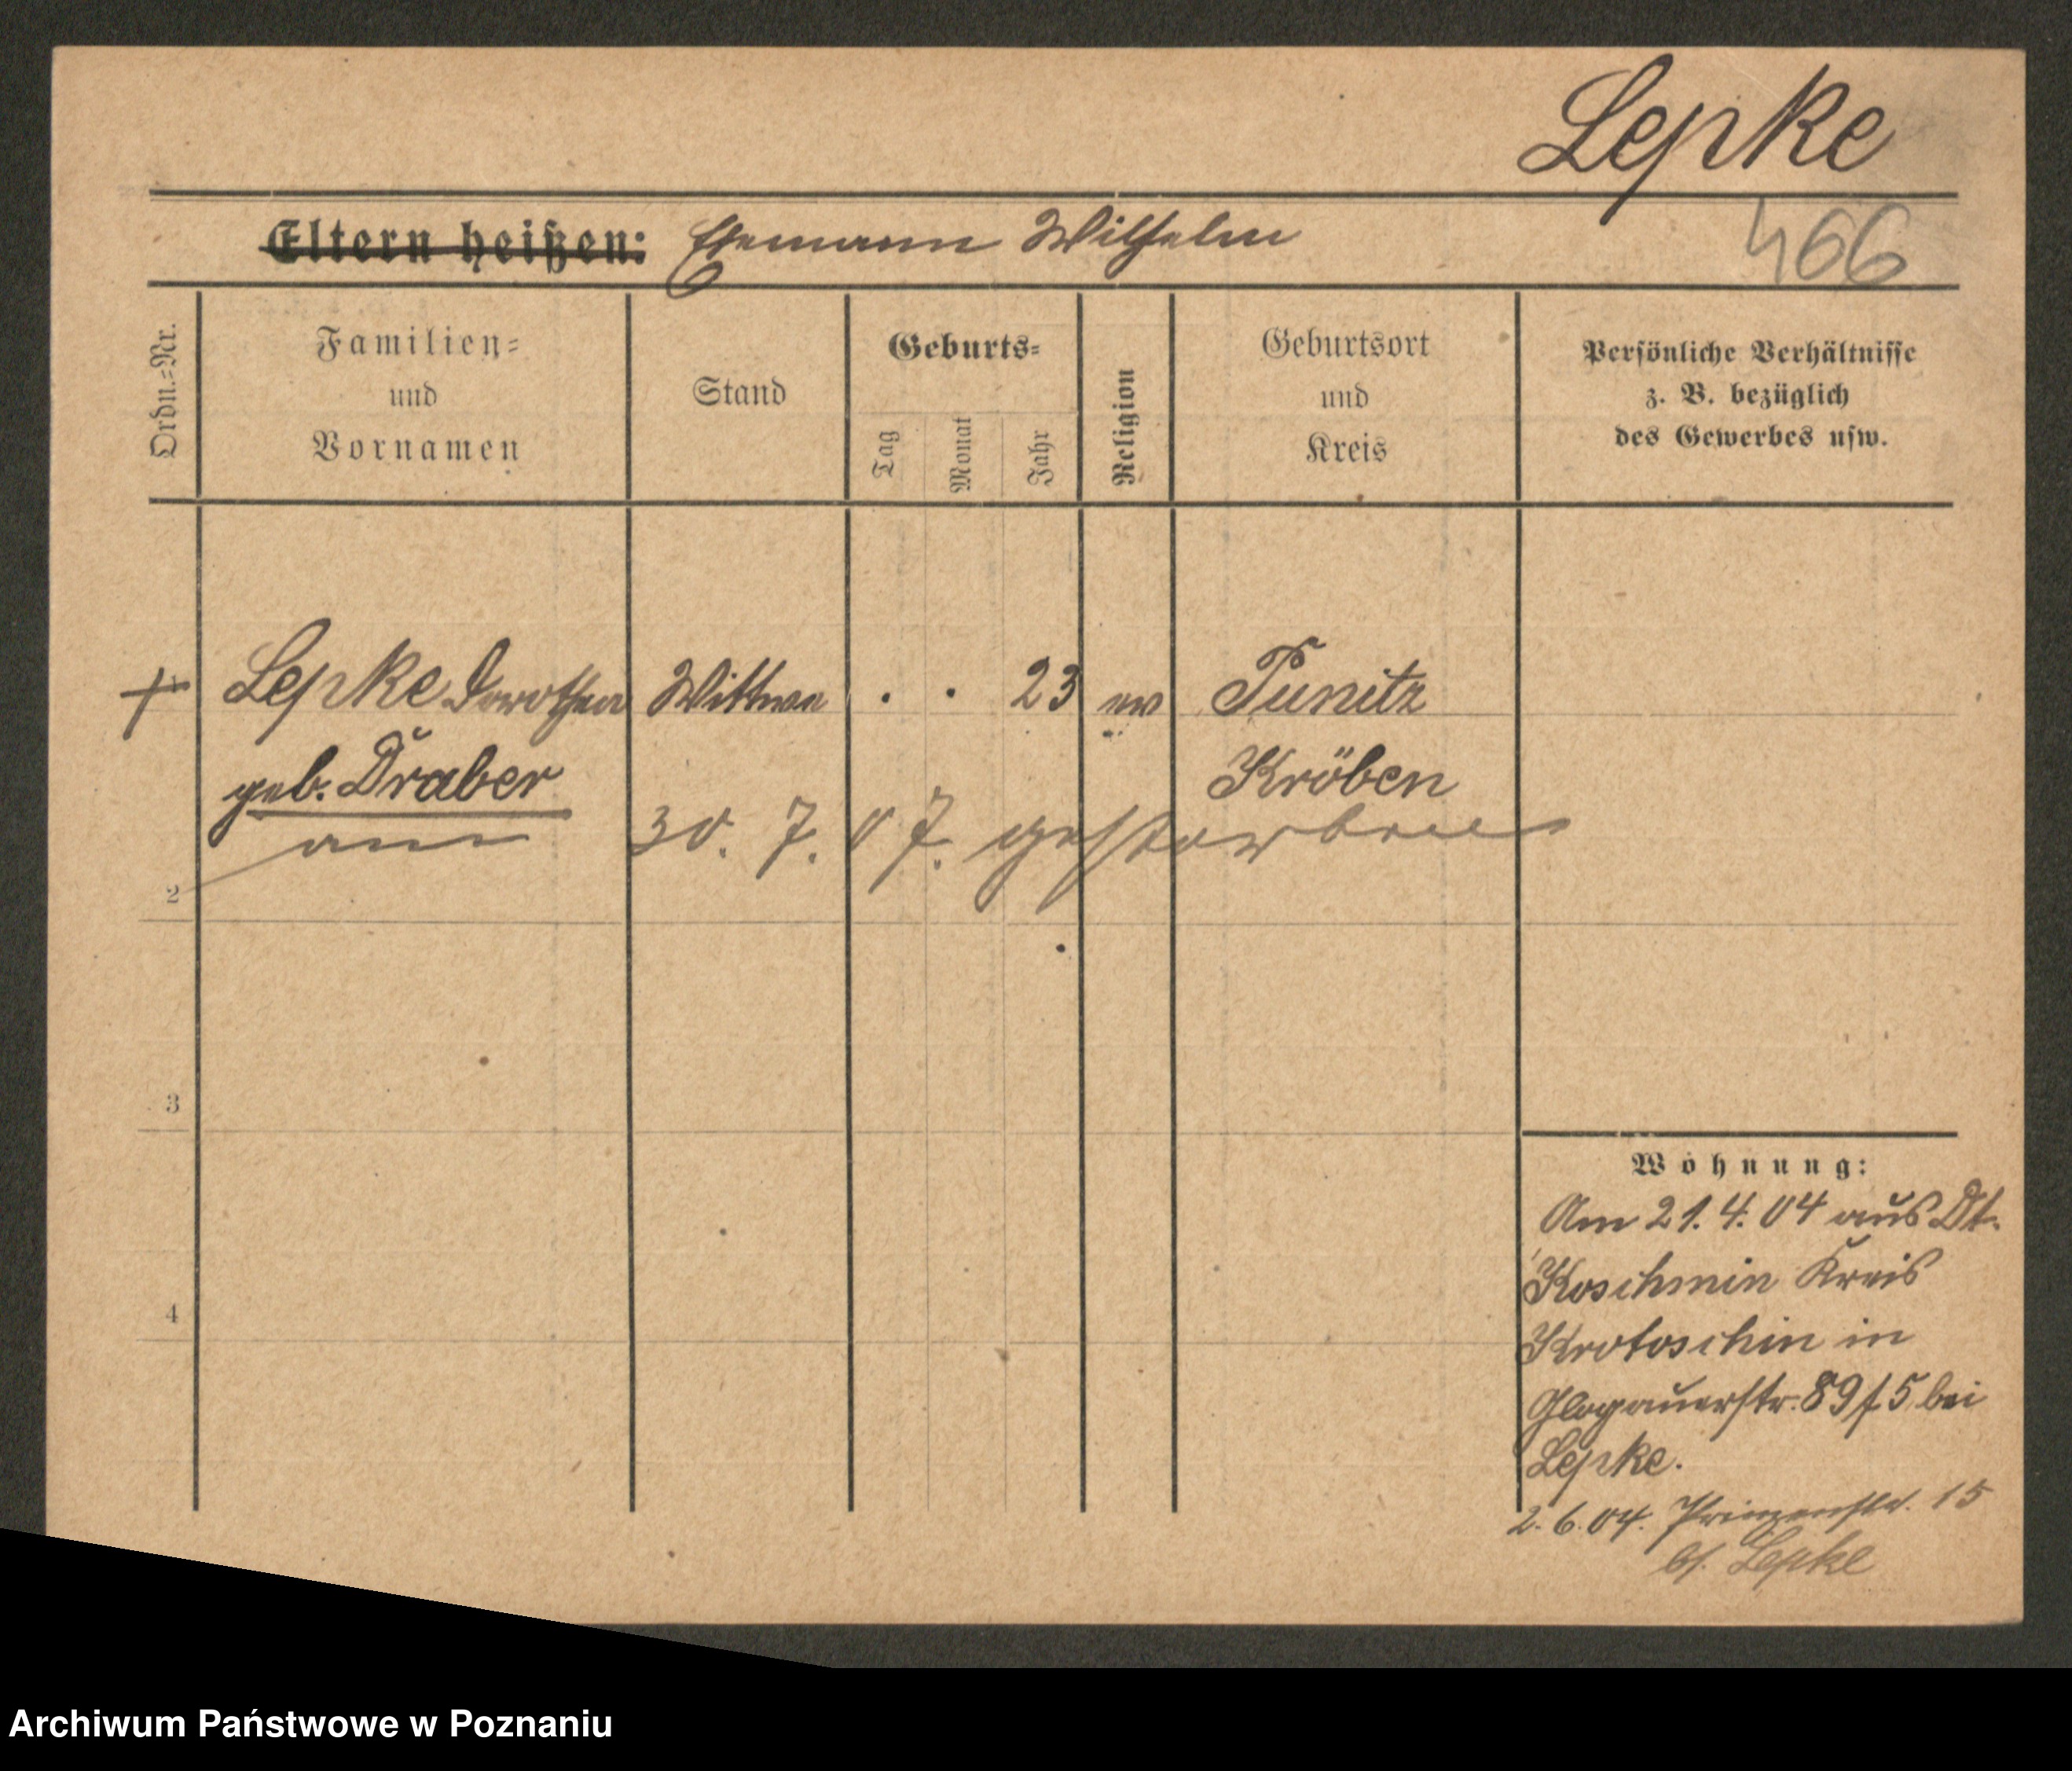 Lepke
466
Eltern heißen: Ehemann Wilhelm
Ordn.=Nr.
Familien=
und
Vornamen
Stand
Geburts=
Tag
Monat
Jahr
Religion
Geburtsort
und
Kreis
Persönliche Verhältnisse
z. B. bezüglich
des Gewerbes usw.
Lepke Dorothea Wittwe . . 23 ev Punitz
geb. Draber Kröben
am 30. 7. 07. gestorben
2
3
4
Wohnung:
Am 21. 4. 04 aus Dt.
Koschmin Kreis
Krotoschin in
Glogauerstr. 89 f. 5 bei
Lepke.
2. 6. 04. Prinzenstr. 15
b/. Lepke
Archiwum Państwowe w Poznaniu